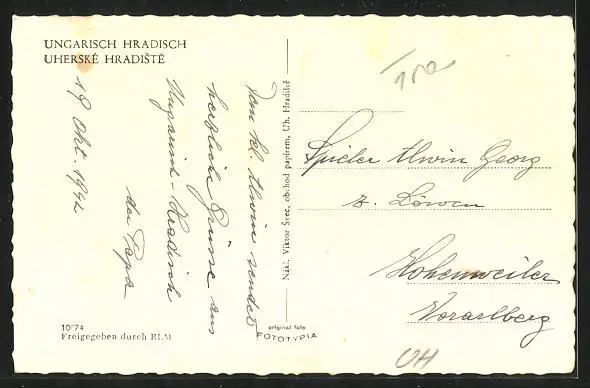 UNGARISCH HRADISCH
UHERSKÉ HRADIŠTĚ
Dem kl. Alwin sendet
herzliche Grüsse aus
Ungarisch-Hradisch
der Papa
19 Okt. 1942
Nákl. Viktor Šrec, obchod papírem, Uh. Hradiště
Spieler Alwin Georg
z. Löwen
Hohenweiler
Vorarlberg
10"74
Freigegeben durch RLM
original foto
FOTOTYPIA
UH